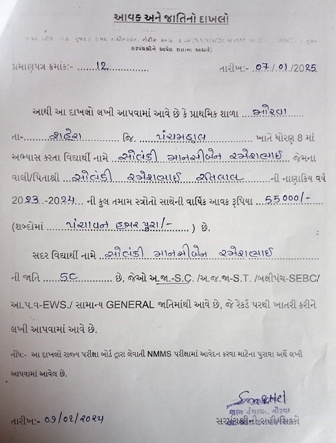 આવક અને જાતિનો દાખલો
પ્રમાણપત્ર ક્રમાંક:- 12 તારીખ:- 07/01/2025
આથી આ દાખલો લખી આપવામાં આવે છે કે પ્રાથમિક શાળા મોરવા
તા- શહેરા જિ. પંચમહાલ ખાતે ધોરણ 8 માં
અભ્યાસ કરતા વિદ્યાર્થી નામે સોલંકી માનસીબેન રમેશભાઈ જેમના
વાલી/પિતાશ્રી સોલંકી રમેશભાઈ રતિલાલ ની નાણાકિય વર્ષ
2023-2024 ની કુલ તમામ સ્ત્રોતો સાથેની વાર્ષિક આવક રૂપિયા 55000/-
(શબ્દોમાં પંચાવન હજાર પુરા/- ) છે.
સદર વિદ્યાર્થી નામે સોલંકી માનસીબેન રમેશભાઈ
ની જાતિ SC છે, જેઓ અ.જા-S.C./અ.જ.જા-S.T. /બક્ષીપંચ-SEBC/
આ.પ.વ-EWS./ સામાન્ય GENERAL જાતિમાંથી આવે છે, જે રેકર્ડ પરથી ખાતરી કરીને
લખી આપવામાં આવે છે.
નોંધ:- આ દાખલો રાજ્ય પરીક્ષા બોર્ડ દ્વારા લેવાતી NMMS પરીક્ષામાં આવેદન કરવા માટેના પુરાવા અર્થે લખી
આપવામાં આવેલ છે.
તારીખ:- 07/01/2025